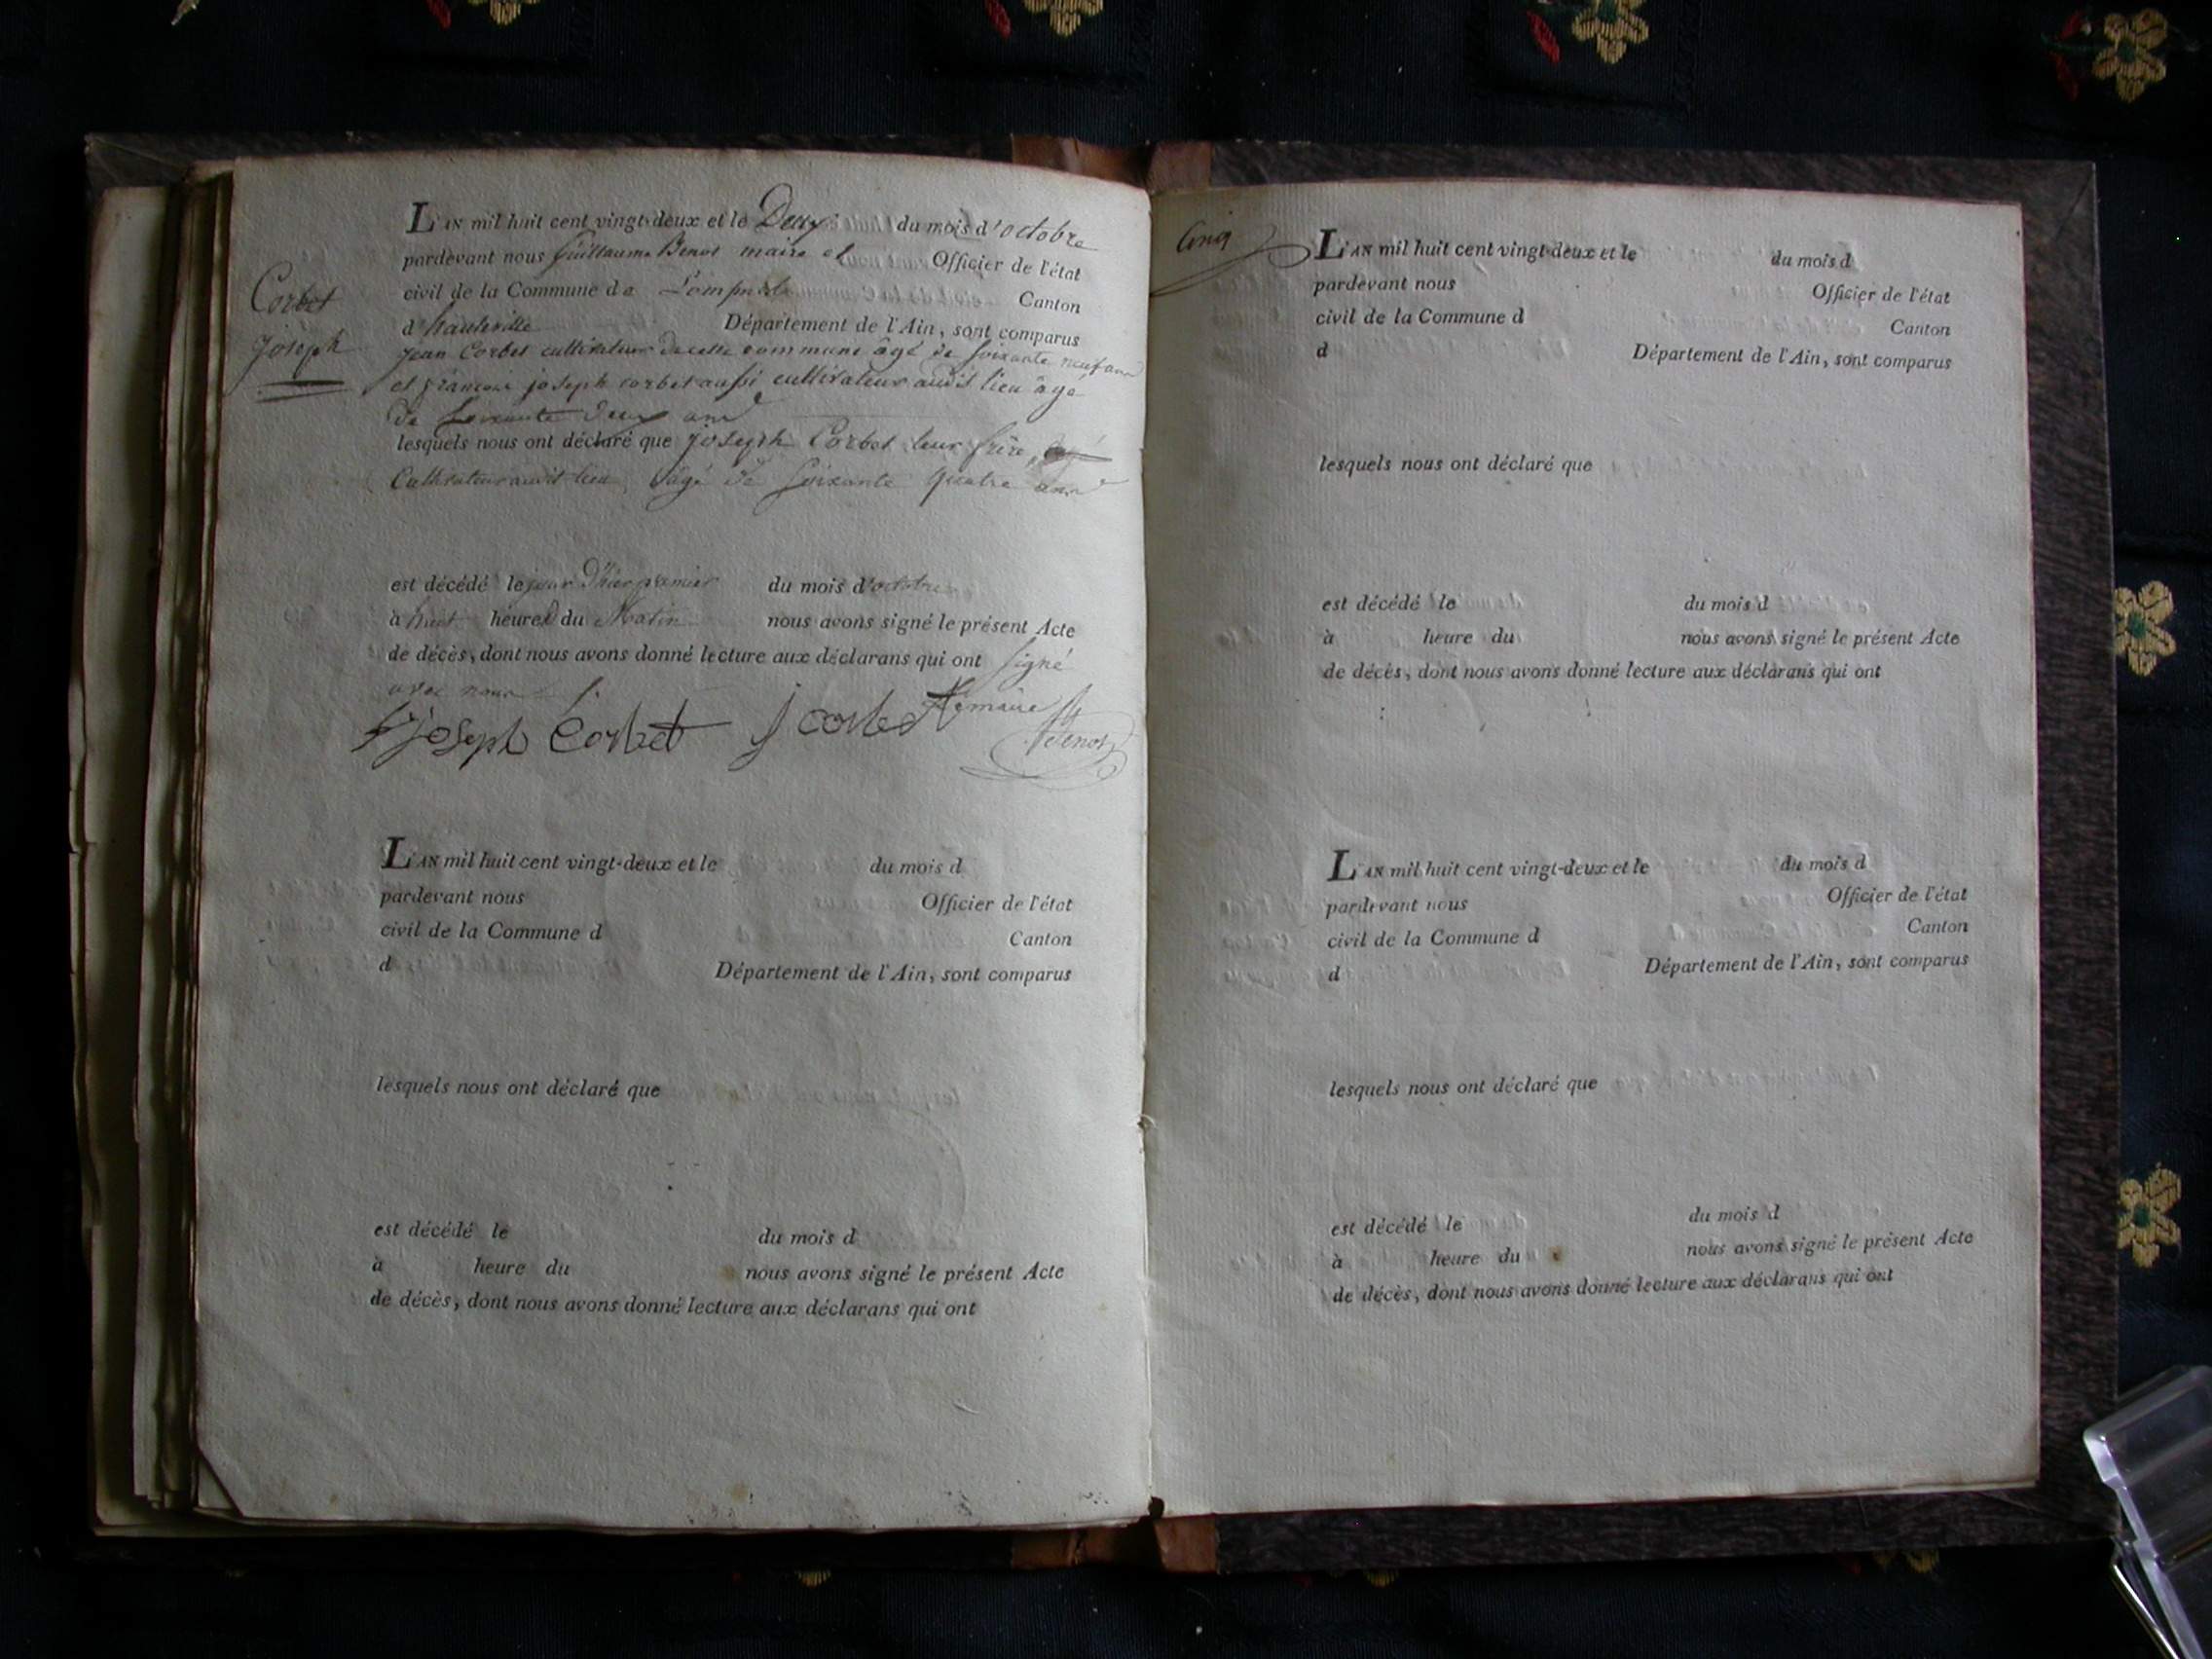 L'AN mil huit cent vingt-deux et le Deux du mois d'octobre
pardevant nous Guillaume Benot maire et Officier de l'état
civil de la Commune de Lompnes Canton
d'hauteville Département de l'Ain, sont comparus
Corbet
Joseph
jean Corbet cultivateur de cette commune âgé de soixante neuf ans
et françois joseph corbet aussi cultivateur audit lieu âgé
de soixante deux ans
lesquels nous ont déclaré que joseph Corbet leur frère,
Cultivateur audit lieu, âgé de soixante quatre ans
est décédé le jour d'hier premier du mois d'octobre
à huit heures du Matin nous avons signé le présent Acte
de décès, dont nous avons donné lecture aux déclarans qui ont signé
avec nous
f joseph Corbet j corbet le maire
Benot
L'AN mil huit cent vingt-deux et le du mois d
pardevant nous Officier de l'état
civil de la Commune d Canton
d Département de l'Ain, sont comparus
lesquels nous ont déclaré que
est décédé le du mois d
à heure du nous avons signé le présent Acte
de décès, dont nous avons donné lecture aux déclarans qui ont
Cinq
L'AN mil huit cent vingt-deux et le du mois d
pardevant nous Officier de l'état
civil de la Commune d Canton
d Département de l'Ain, sont comparus
lesquels nous ont déclaré que
est décédé le du mois d
à heure du nous avons signé le présent Acte
de décès, dont nous avons donné lecture aux déclarans qui ont
L'AN mil huit cent vingt-deux et le du mois d
pardevant nous Officier de l'état
civil de la Commune d Canton
d Département de l'Ain, sont comparus
lesquels nous ont déclaré que
est décédé le du mois d
à heure du nous avons signé le présent Acte
de décès, dont nous avons donné lecture aux déclarans qui ont